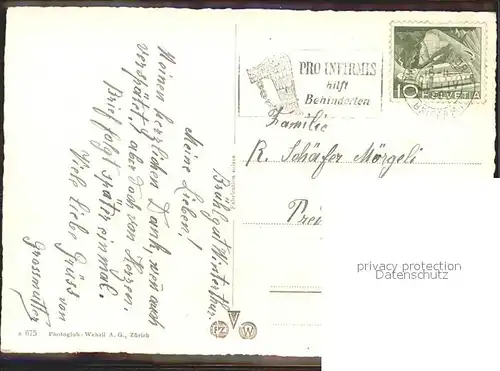 Brühlgut Winterthur.
Meine Lieben!
Meinen herzlichen Dank, wenn auch
verspätet, aber doch von Herzen.
Brief folgt später einmal.
Viele liebe Grüsse von
Grossmutter
PRO INFIRMIS
hilft
Behinderten
10
HELVETIA
Familie
R. Schäfer Mörgeli
privacy protection
www.ansichtskartenversand.com
a 675 Photoglob-Wehrli A. G., Zürich
PZ W